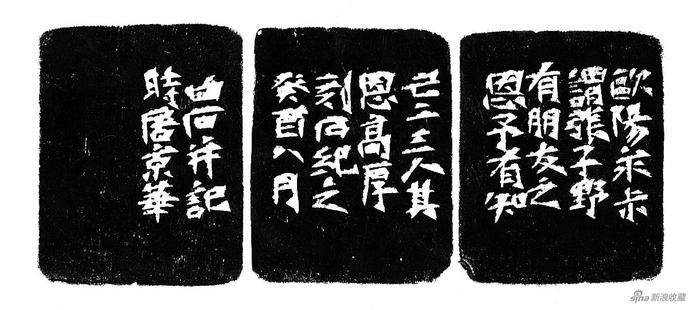 歐陽永尗
謂張子野
有朋友之
恩予有知
己二三人其
恩高厚
刻石紀之
癸酉八月
白石并記
時居京華
sina 新浪收藏